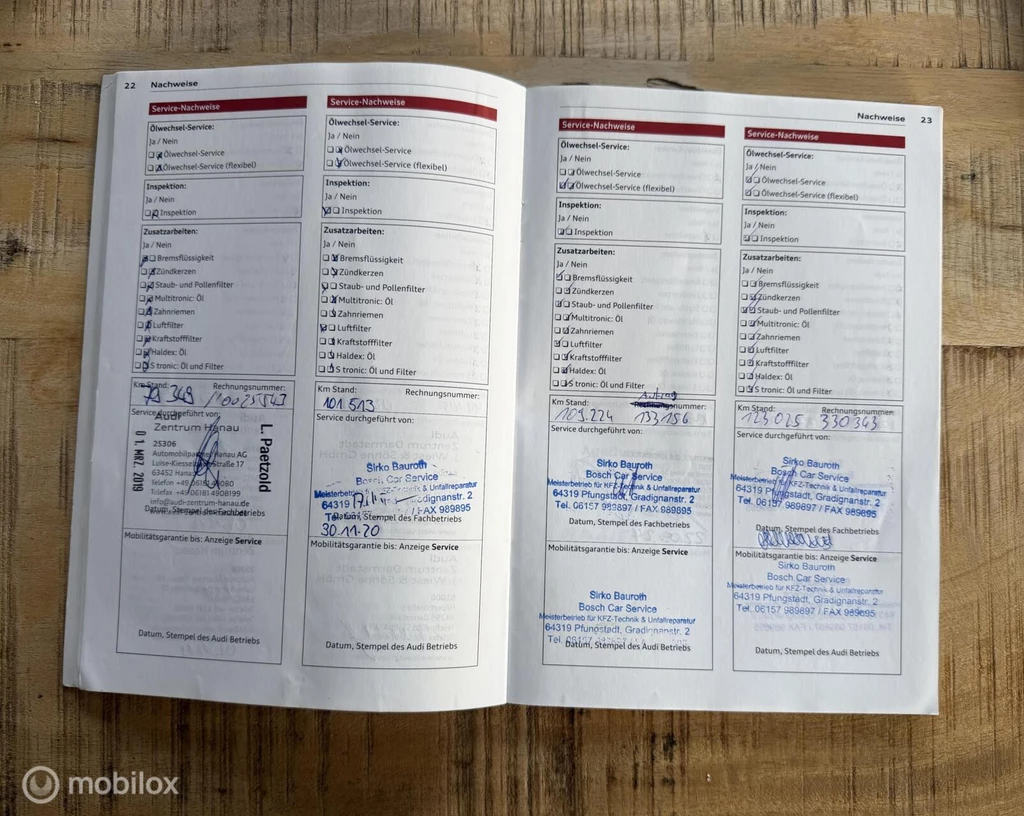 22 Nachweise
Service-Nachweise
Ölwechsel-Service:
Ja / Nein
Ölwechsel-Service
Ölwechsel-Service (flexibel)
Inspektion:
Ja / Nein
Inspektion
Zusatzarbeiten:
Ja / Nein
Bremsflüssigkeit
Zündkerzen
Staub- und Pollenfilter
Multitronic: Öl
Zahnriemen
Luftfilter
Kraftstofffilter
Haldex: Öl
S tronic: Öl und Filter
Km Stand: Rechnungsnummer:
Service durchgeführt von:
Audi
Zentrum Hanau
25306
Automobilpartner Hanau AG
63452 Hanau
Telefax +49 06181 4908199
info@audi-zentrum-hanau.de
Datum, Stempel des Fachbetriebs
01. MRZ. 2019
L. Paetzold
Mobilitätsgarantie bis: Anzeige Service
Datum, Stempel des Audi Betriebs
Service-Nachweise
Ölwechsel-Service:
Ja / Nein
Ölwechsel-Service
Ölwechsel-Service (flexibel)
Inspektion:
Ja / Nein
Inspektion
Zusatzarbeiten:
Ja / Nein
Bremsflüssigkeit
Zündkerzen
Staub- und Pollenfilter
Multitronic: Öl
Zahnriemen
Luftfilter
Kraftstofffilter
Haldex: Öl
S tronic: Öl und Filter
Km Stand: Rechnungsnummer:
101 513
Service durchgeführt von:
Sirko Bauroth
Bosch Car Service
Meisterbetrieb für KFZ-Technik & Unfallreparatur
64319 Gradignanstr. 2
Tel. / FAX 989895
Datum, Stempel des Fachbetriebs
30.11.20
Mobilitätsgarantie bis: Anzeige Service
Datum, Stempel des Audi Betriebs
Nachweise 23
Service-Nachweise
Ölwechsel-Service:
Ja / Nein
Ölwechsel-Service
Ölwechsel-Service (flexibel)
Inspektion:
Ja / Nein
Inspektion
Zusatzarbeiten:
Ja / Nein
Bremsflüssigkeit
Zündkerzen
Staub- und Pollenfilter
Multitronic: Öl
Zahnriemen
Luftfilter
Kraftstofffilter
Haldex: Öl
S tronic: Öl und Filter
Auftrag
Km Stand: Rechnungsnummer:
109.224 133156
Service durchgeführt von:
Sirko Bauroth
Bosch Car Service
Meisterbetrieb für KFZ-Technik & Unfallreparatur
64319 Pfungstadt, Gradignanstr. 2
Tel. 06157 989897 / FAX 989895
Datum, Stempel des Fachbetriebs
Mobilitätsgarantie bis: Anzeige Service
Sirko Bauroth
Bosch Car Service
Meisterbetrieb für KFZ-Technik & Unfallreparatur
64319 Pfungstadt, Gradignanstr. 2
Tel. 06157 989897 / FAX 989895
Datum, Stempel des Audi Betriebs
Service-Nachweise
Ölwechsel-Service:
Ja / Nein
Ölwechsel-Service
Ölwechsel-Service (flexibel)
Inspektion:
Ja / Nein
Inspektion
Zusatzarbeiten:
Ja / Nein
Bremsflüssigkeit
Zündkerzen
Staub- und Pollenfilter
Multitronic: Öl
Zahnriemen
Luftfilter
Kraftstofffilter
Haldex: Öl
S tronic: Öl und Filter
Km Stand: Rechnungsnummer:
123 025 330343
Service durchgeführt von:
Sirko Bauroth
Bosch Car Service
Meisterbetrieb für KFZ-Technik & Unfallreparatur
64319 Pfungstadt, Gradignanstr. 2
Tel. 06157 989897 / FAX 989895
Datum, Stempel des Fachbetriebs
Mobilitätsgarantie bis: Anzeige Service
Sirko Bauroth
Bosch Car Service
Meisterbetrieb für KFZ-Technik & Unfallreparatur
64319 Pfungstadt, Gradignanstr. 2
Tel. 06157 989897 / FAX 989895
Datum, Stempel des Audi Betriebs
mobilox